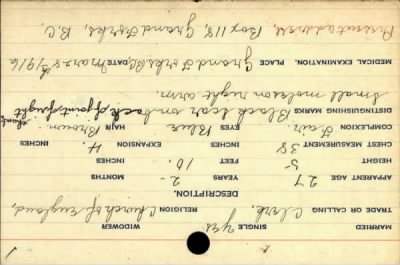 MARRIED SINGLE yes. WIDOWER
TRADE OR CALLING Clerk, RELIGION Church of England,
DESCRIPTION.
APPARENT AGE 27 YEARS 2 MONTHS
HEIGHT 5 FEET 10. INCHES
CHEST MEASUREMENT 38 INCHES EXPANSION 4. INCHES
COMPLEXION Fair EYES Blue HAIR Brown.
DISTINGUISHING MARKS Black scar on back of joint of right
Small mole on right arm.
MEDICAL EXAMINATION. PLACE Grand Forks, B.C. DATE Mar. 8th 1916
Present address, Box 118, Grand Forks, B.C.